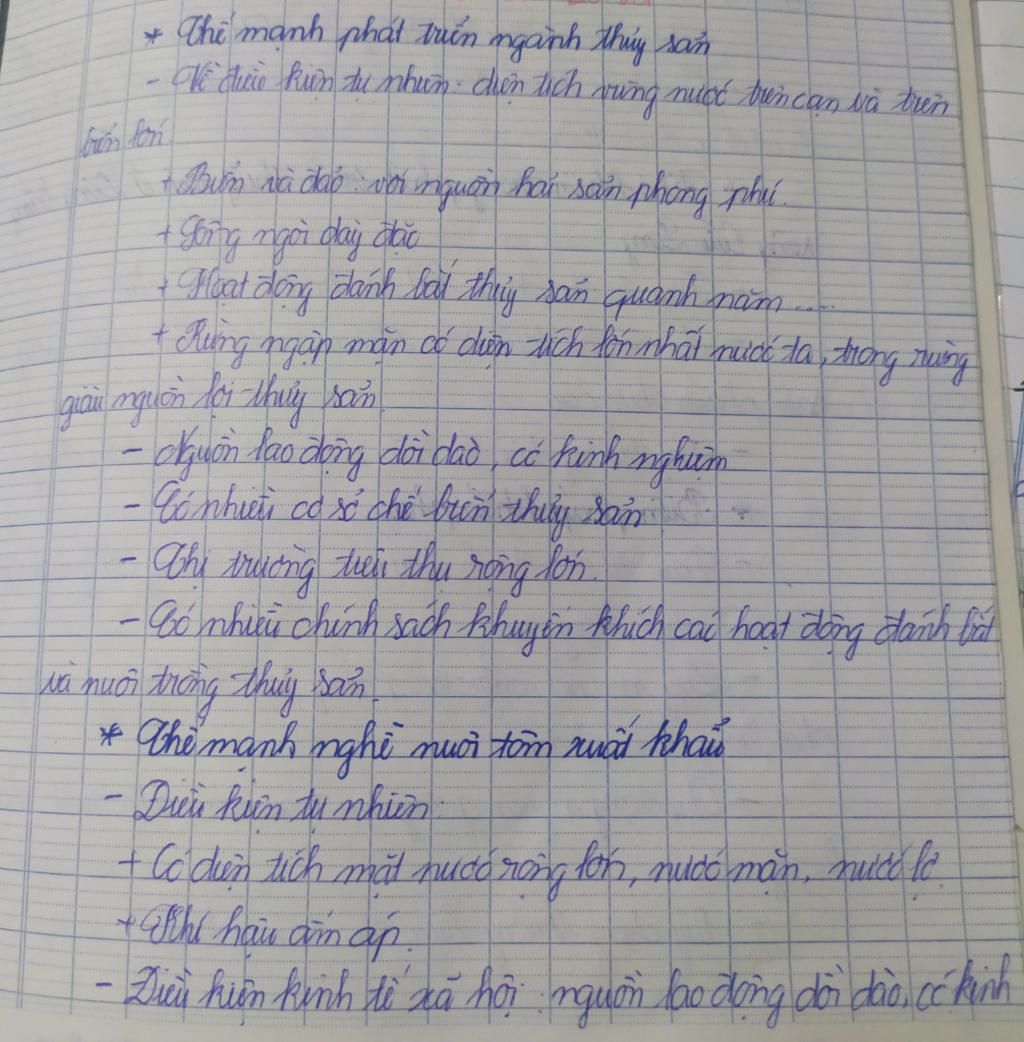 * Thế mạnh phát triển ngành thủy sản
- Về điều kiện tự nhiên: diện tích vùng nước trên cạn và trên
biển lớn.
+ Biển và đảo: với nguồn hải sản phong phú.
+ Sông ngòi dày đặc
+ Hoạt động đánh bắt thủy sản quanh năm....
+ Rừng ngập mặn có diện tích lớn nhất nước ta, trong rừng
giàu nguồn lợi thủy sản.
- Nguồn lao động dồi dào, có kinh nghiệm
- Có nhiều cơ sở chế biến thủy sản
- Thị trường tiêu thụ rộng lớn.
- Có nhiều chính sách khuyến khích các hoạt động đánh bắt
và nuôi trồng thủy sản.
* Thế mạnh nghề nuôi tôm xuất khẩu
- Điều kiện tự nhiên:
+ Có diện tích mặt nước rộng lớn, nước mặn, nước lợ.
+ Khí hậu ấm áp.
- Điều kiện kinh tế xã hội: nguồn lao động dồi dào, có kinh